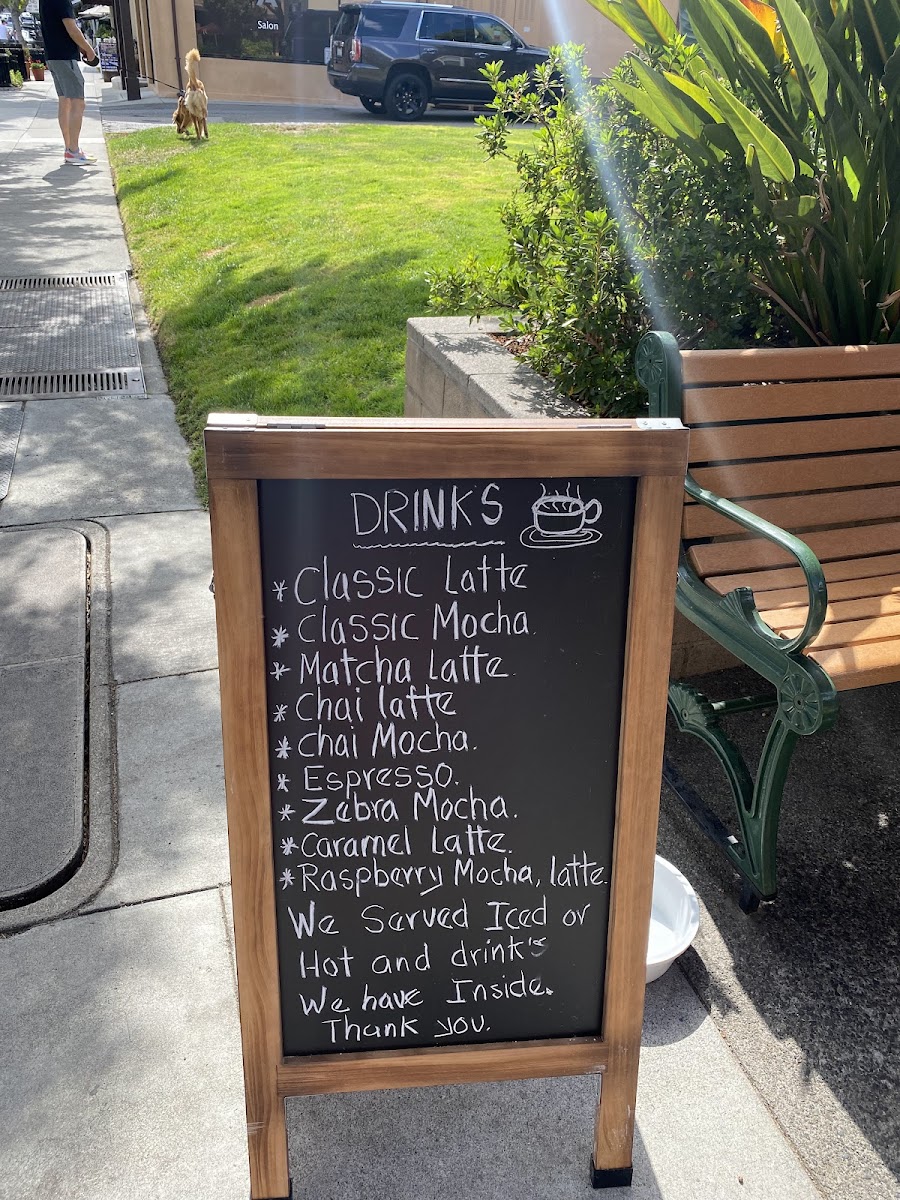 Salon
DRINKS
* Classic Latte
* Classic Mocha.
* Matcha Latte.
* Chai latte
* Chai Mocha.
* Espresso.
* Zebra Mocha.
* Caramel Latte.
* Raspberry Mocha, latte.
We Served Iced or
Hot and drink's
We have Inside.
Thank you.